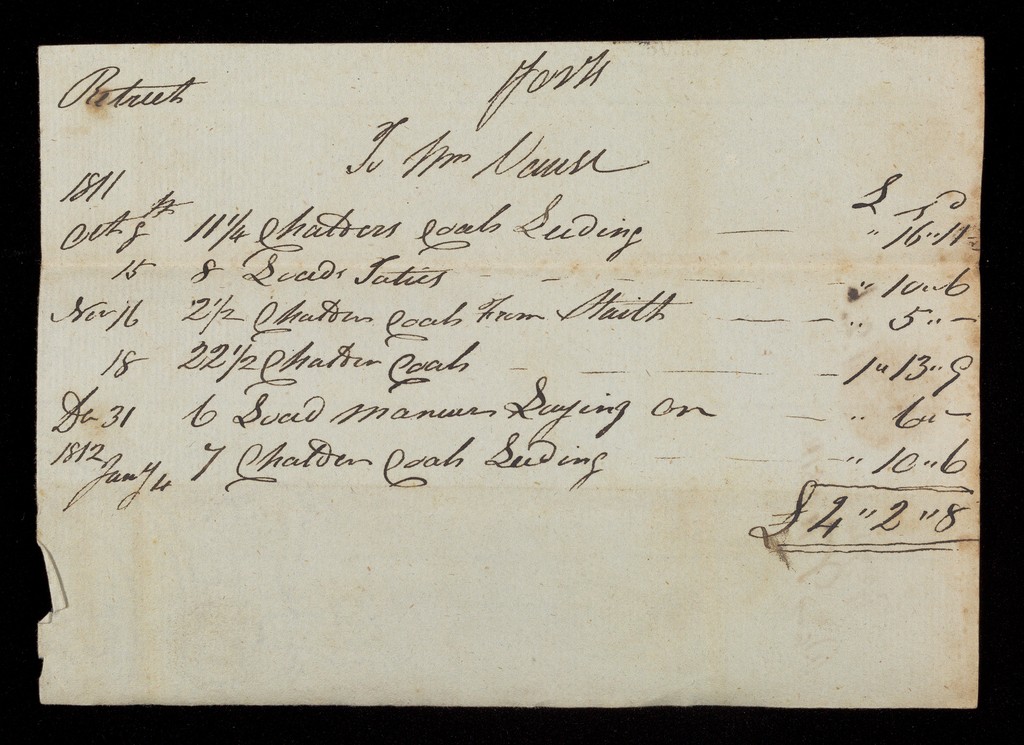 Retreet York
To Wm Vause
1811 £ s d
Oct 9th 11 1/4 Chalders Coals Leeding — " 16 " 11
15 8 Loads Taties - - - " 10 " 6
Nov 16 2 1/2 Chalder Coals From Staith — " 5 " —
18 22 1/2 Chalder Coals — 1 " 13 " 9
De 31 6 Load maneur Laying on — " 6 " —
1812
Jany 4 7 Chalder Coals Leeding — " 10 " 6
£ 4 " 2 " 8